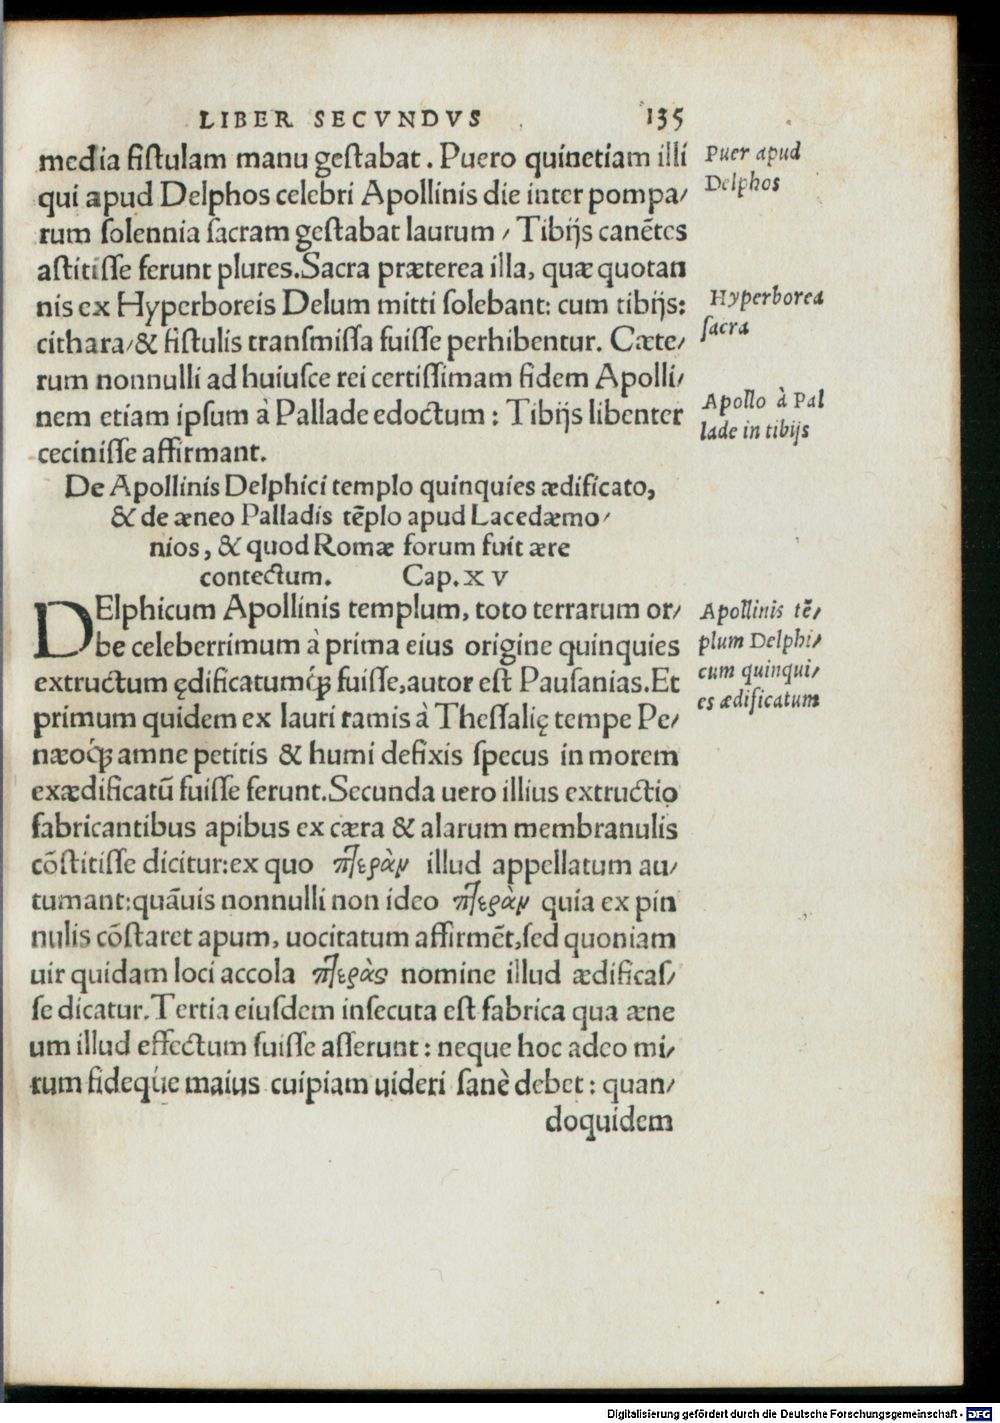 LIBER SECVNDVS 135
media fiſtulam manu geſtabat. Puero quinetiam illi
qui apud Delphos celebri Apollinis die inter pompa/
rum ſolennia ſacram geſtabat laurum / Tibijs canẽtes
aſtitiſſe ferunt plures. Sacra præterea illa, quæ quotan
nis ex Hyperboreis Delum mitti ſolebant: cum tibijs:
cithara/ & fiſtulis tranſmiſſa fuiſſe perhibentur. Cæte/
rum nonnulli ad huiuſce rei certiſſimam fidem Apolli/
nem etiam ipſum à Pallade edoctum: Tibijs libenter
ceciniſſe affirmant.
Puer apud
Delphos
Hyperborea
ſacra
Apollo à Pal
lade in tibijs
De Apollinis Delphici templo quinquies ædificato,
& de æneo Palladis tẽplo apud Lacedæmo/
nios, & quod Romæ forum fuit ære
contectum. Cap. XV
DElphicum Apollinis templum, toto terrarum or/
be celeberrimum à prima eius origine quinquies
extructum ędificatumq́ꝫ fuiſſe, autor eſt Pauſanias. Et
primum quidem ex lauri ramis à Theſſalię tempe Pe/
næoq́ꝫ amne petitis & humi defixis ſpecus in morem
exædificatũ fuiſſe ferunt. Secunda uero illius extructio
fabricantibus apibus ex cæra & alarum membranulis
cõſtitiſſe dicitur: ex quo πτερὰν illud appellatum au/
tumant: quãuis nonnulli non ideo πτερὰν quia ex pin
nulis cõſtaret apum, uocitatum affirmẽt, ſed quoniam
uir quidam loci accola πτερὰς nomine illud ædificaſ/
ſe dicatur. Tertia eiuſdem inſecuta eſt fabrica qua æne
um illud effectum fuiſſe aſſerunt: neque hoc adeo mi/
rum fideque maius cuipiam uideri ſanè debet: quan/
doquidem
Apollinis tẽ/
plum Delphi/
cum quinqui/
es ædificatum
Digitalisierung gefördert durch die Deutsche Forschungsgemeinschaft - DFG